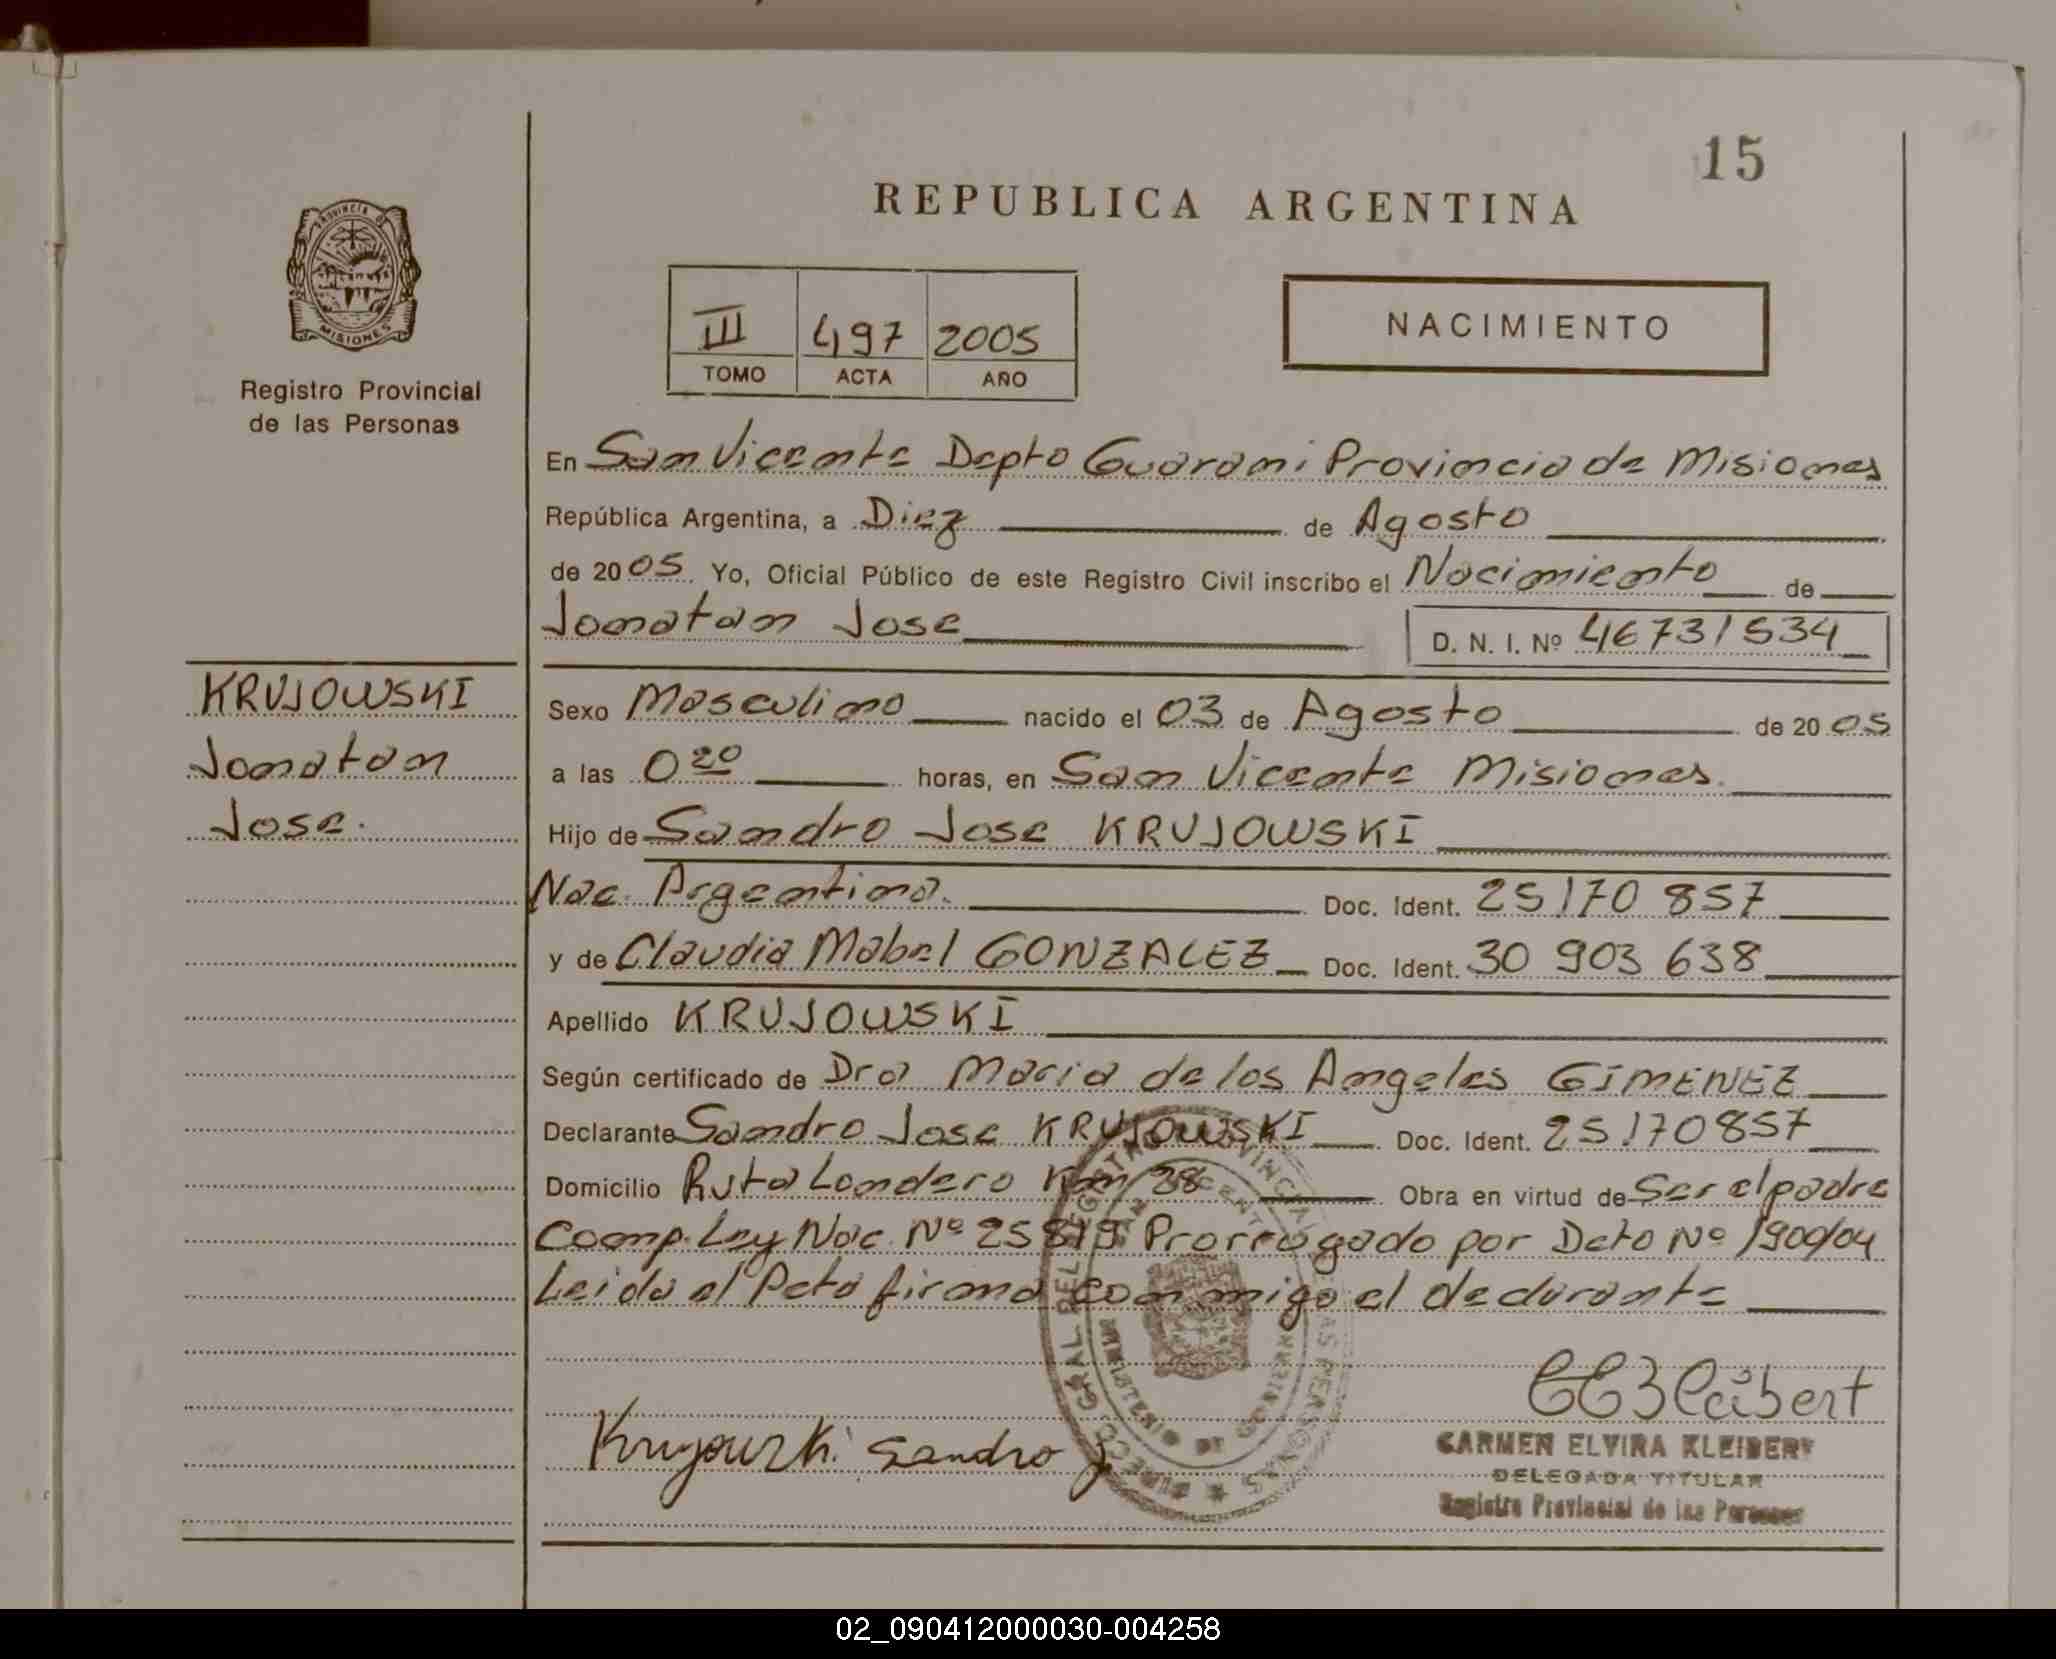 15
REPUBLICA ARGENTINA
PROVINCIA DE
MISIONES
Registro Provincial
de las Personas
III 497 2005
TOMO ACTA AÑO
NACIMIENTO
En San Vicente Depto Guarani Provincia de Misiones
República Argentina, a Diez de Agosto
de 2005 Yo, Oficial Público de este Registro Civil inscribo el Nacimiento de
Jonatan Jose D. N. I. Nº 46731534
KRUJOWSKI
Jonatan
Jose.
Sexo Masculino nacido el 03 de Agosto de 2005
a las 0 20 horas, en San Vicente Misiones.
Hijo de Sandro Jose KRUJOWSKI
Nac. Argentina. Doc. Ident. 25170 857
y de Claudia Mabel GONZALEZ Doc. Ident. 30 903 638
Apellido KRUJOWSKI
Según certificado de Dra Maria de los Angeles GIMENEZ
Declarante Sandro Jose KRUJOWSKI Doc. Ident. 25170857
Domicilio Ruta Londero Km 28 Obra en virtud de Ser el padre
Comp. Ley Nac. Nº 25819 Prorrogado por Dcto Nº 1900/04
Leida el Acta firma conmigo el declarante
Krujowski Sandro J
CARMEN ELVIRA KLEIBERT
DELEGADA TITULAR
Registro Provincial de las Personas
02_090412000030-004258